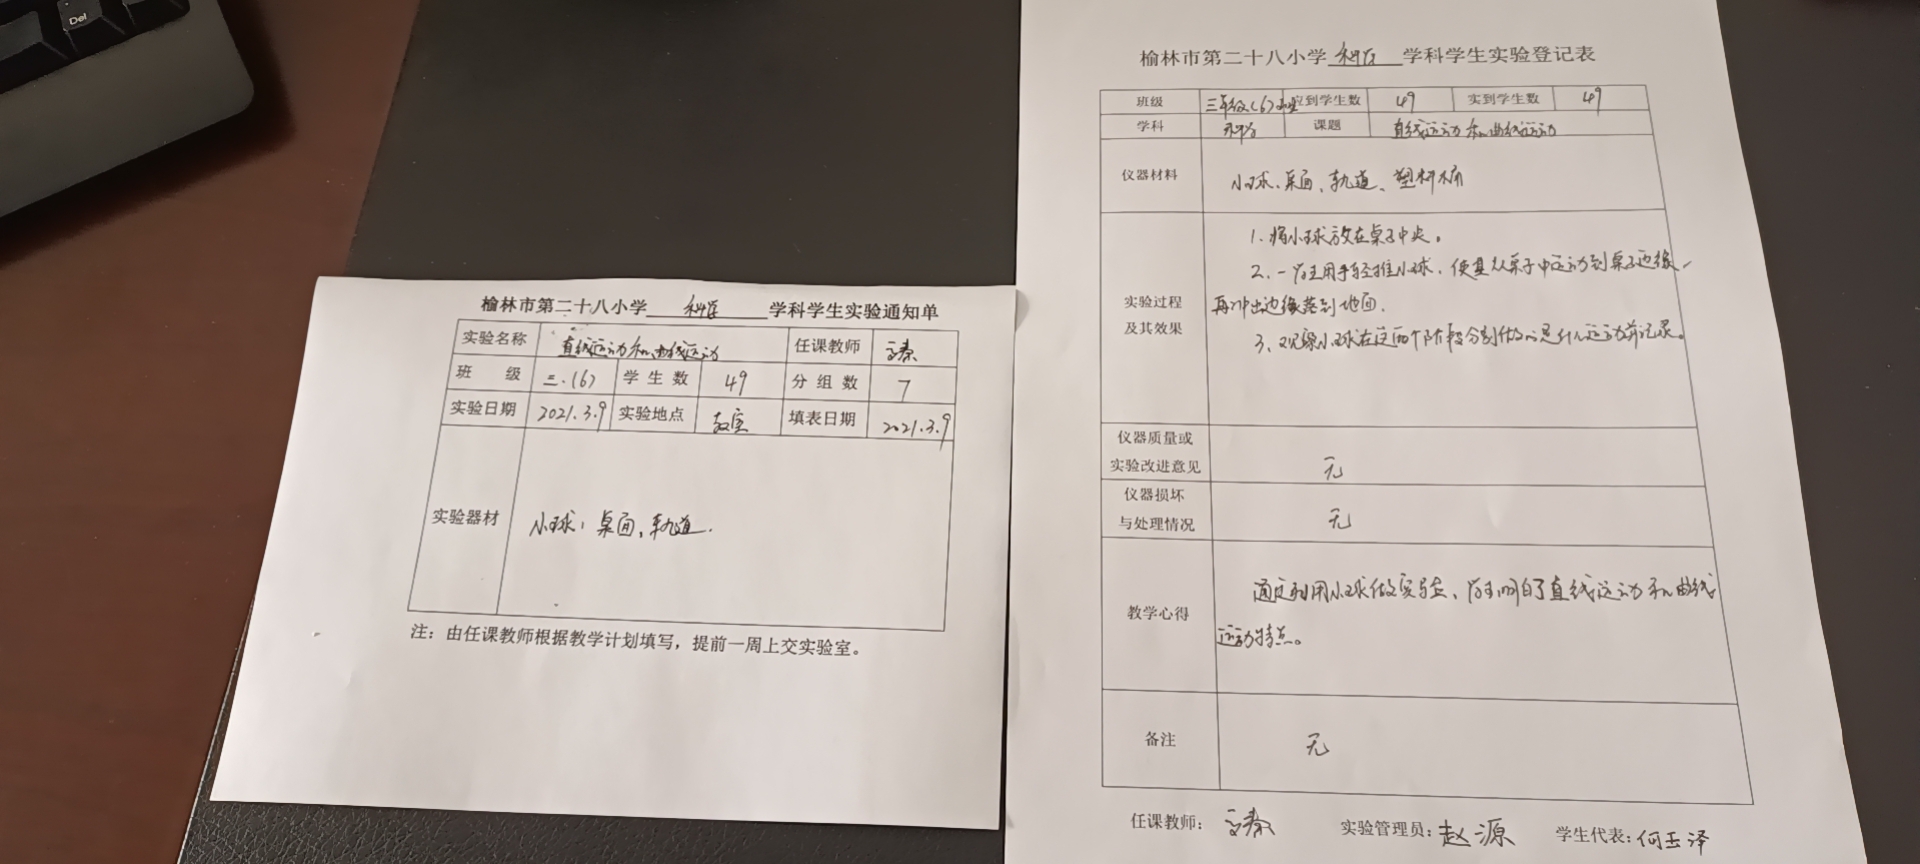 Del
榆林市第二十八小学 科学 学科学生实验通知单
实验名称 直线运动和曲线运动 任课教师
班 级 三.(6) 学生数 49 分组数 7
实验日期 2021.3.9 实验地点 教室 填表日期 2021.3.9
实验器材 小球、桌面、轨道.
注：由任课教师根据教学计划填写，提前一周上交实验室。
榆林市第二十八小学 科学 学科学生实验登记表
班级 三年级(6)班 应到学生数 49 实到学生数 49
学科 科学 课题 直线运动和曲线运动
仪器材料 小球、桌面、轨道、塑料桶
实验过程
及其效果
1. 将小球放在桌子中央。
2. 一学生用手轻推小球，使其从桌子中运动到桌子边缘，
再冲出边缘落到地面.
3、观察小球在这两个阶段分别做的是什么运动并记录。
仪器质量或
实验改进意见 无
仪器损坏
与处理情况 无
教学心得
通过利用小球做实验，学生明白了直线运动和曲线
运动特点。
备注 无
任课教师： 实验管理员：赵源 学生代表：何玉泽